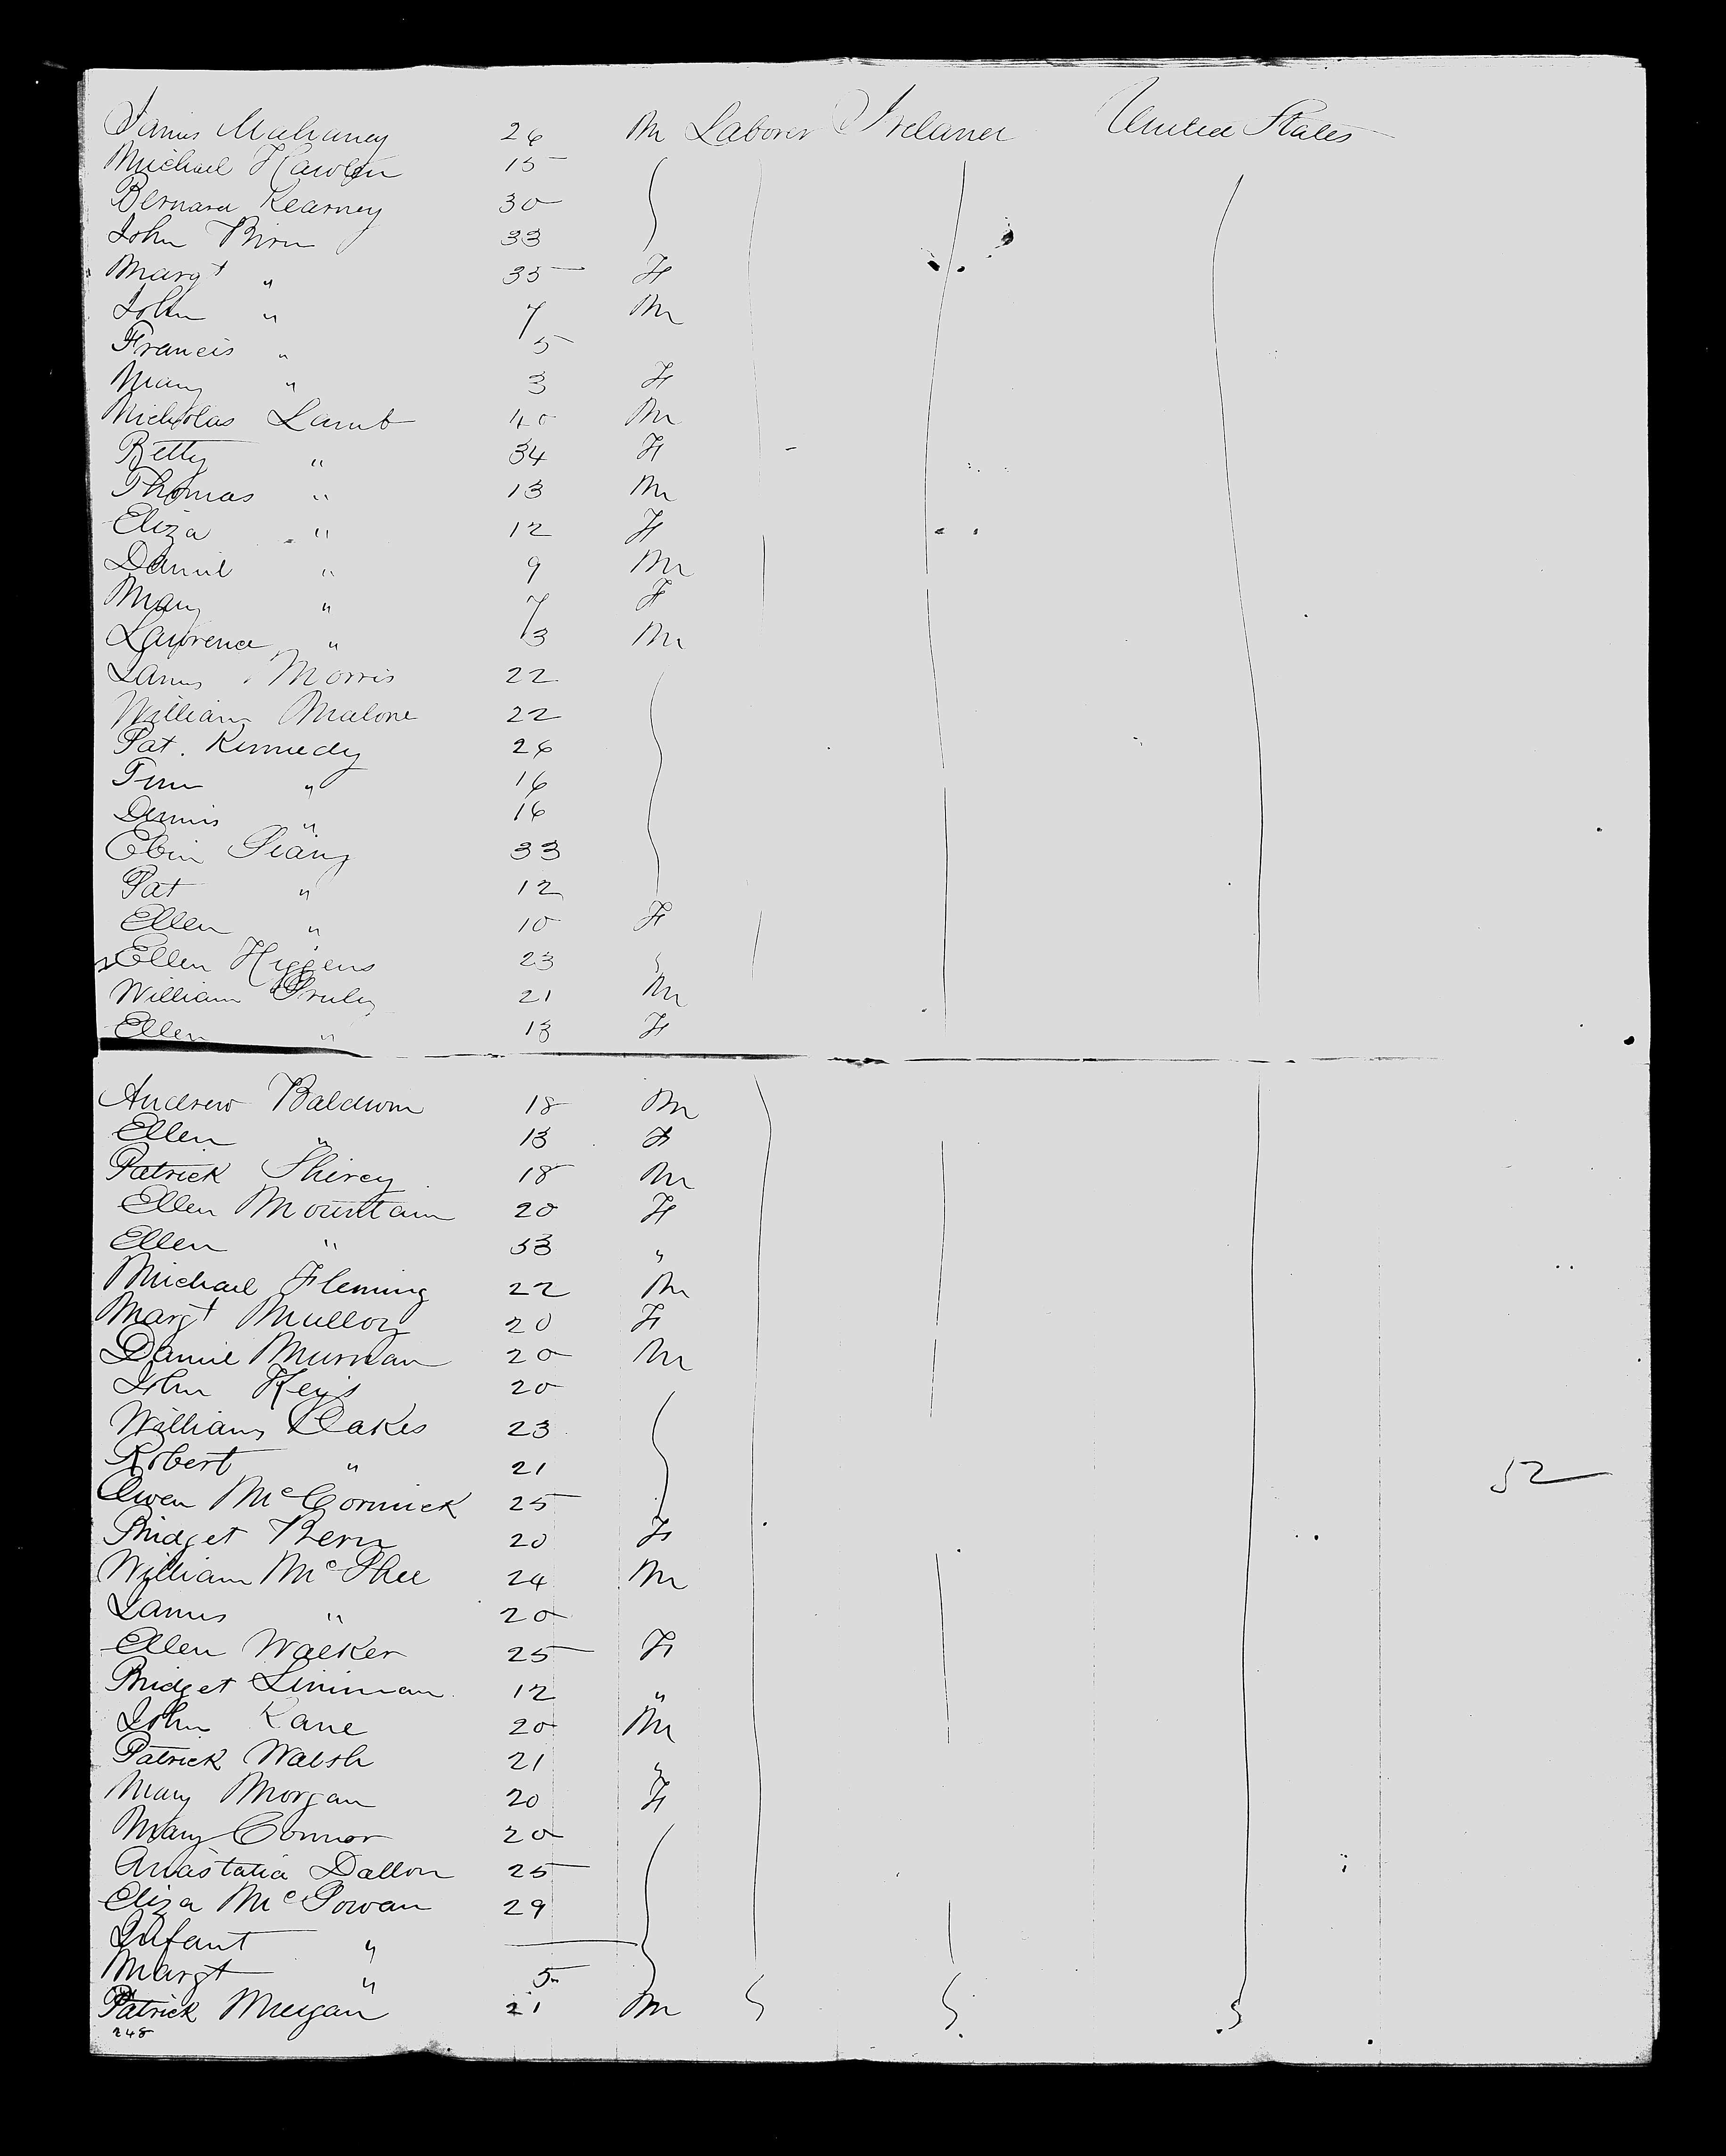 James Mulhaney 26 M Laborer Ireland United States
Michael 15
Bernard Kearney 30
John Birn 33
Margt " 35 F
John " 7 M
Francis " 5
Mary " 3 F
Nicholas Lamb 40 M
Betty " 34 F
Thomas " 13 M
Eliza " 12 F
Daniel " 9 M
Mary " 7 F
Lawrence " 3 M
James Morris 22
William Malone 22
Pat. Kennedy 26
Tim " 16
Dennis " 16
33
Pat " 12
Ellen " 10 F
Ellen Higgens 23
William 21 M
Ellen " 13 F
Andrew Baldwin 18 M
Ellen " 13 F
Patrick Shirey 18 M
Ellen Mountain 20 F
Ellen " 53 "
Michael Fleming 22 M
Margt Mulloy 20 F
Daniel Murnan 20 M
John Keys 20
William Oakes 23
Robert " 21
Owen McCormick 25
52
Bridget Bern 20 F
William McPhee 24 M
James " 20
Ellen Walker 25 F
Bridget Lininan 12 "
John Kane 20 M
Patrick Walsh 21 "
Mary Morgan 20 F
Mary Connor 20
Anastatia Dallon 25
Eliza McGowan 29
Infant "
Margt " 5
Patrick Meegan 21 M
248